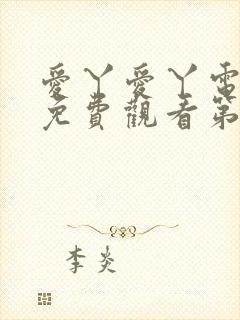 愛丫愛丫電
免費觀看第
李炎